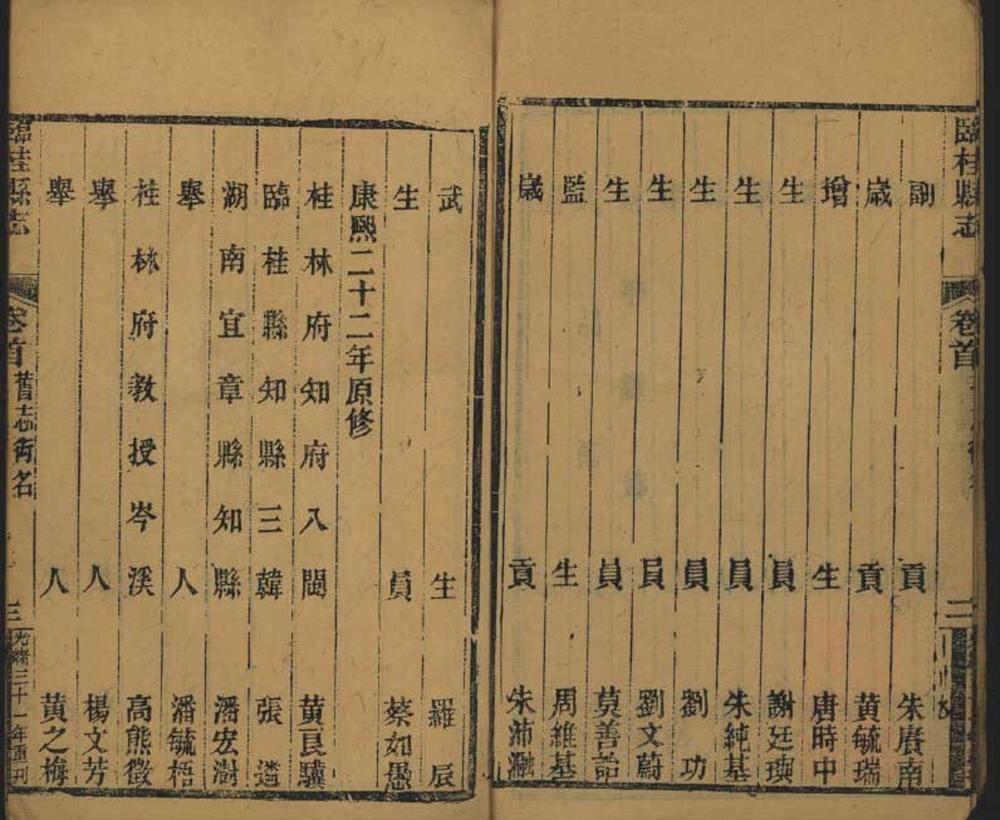 臨桂縣志 卷首 二
副貢 朱賡南
歲貢 黃毓瑞
增生 唐時中
生員 謝廷瑛
生員 朱純基
生員 劉功
生員 劉文蔚
生員 莫善詒
監生 周維基
歲貢 朱沛瀜
武生 羅辰
生員 蔡如愚
康熙二十二年原修
桂林府知府入閩 黃良驥
臨桂縣知縣三韓 張遴
湖南宜章縣知縣 潘宏澍
舉人 潘毓梧
桂林府教授岑溪 高熊徵
舉人 楊文芳
舉人 黃之梅
臨桂縣志 卷首 舊志銜名 三 光緒三十一年重刊